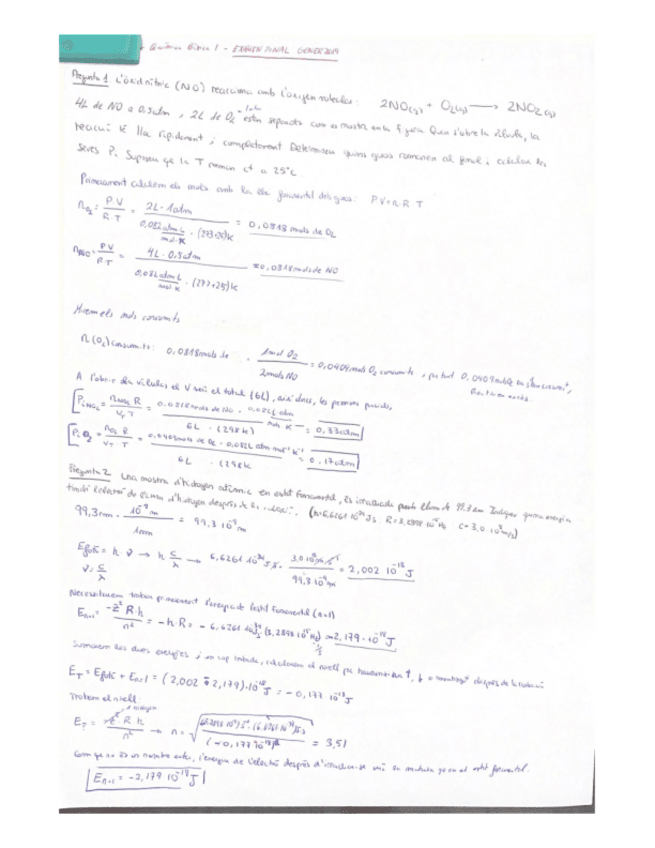 Química Física 1 - EXAMEN FINAL GENER 2019
Pregunta 1 L'òxid nítric (NO) reacciona amb l'oxigen molecular: 2NO(g) + O2(g) → 2NO2(g)
4L de NO a 0,5atm, 2L de O2 estan separats com es mostra en la figura. Quan s'obre la vàlvula, la
reacció és ràpidament i completament. Determineu quins gasos romanen al final i calculeu les
seves Pi. Suposeu que la T roman ct a 25°C.
Primerament calculem els mols amb la llei dels gasos: PV=nRT
nO2 = P·V / R·T = 2L·1atm / 0,082 atm L / mol·K · (273+25)K = 0,0818 mols de O2
nNO = P·V / R·T = 4L·0,5atm / 0,082 atm L / mol K · (273+25)K = 0,0818 mols de NO
Mirem els mols consumits
n(O2) consumits: 0,0818 mols de · 1mol O2 / 2mols NO = 0,0409 mols O2 consumits, per tant 0,0409 mols
A l'obrir la vàlvula el V serà el total (6L), així doncs, les pressions parcials,
PiNO2 = nNO2 R / VT T = 0,0818 mols de NO · 0,082 L atm / mol K / 6L · (298K) = 0,33atm
PiO2 = nO2 R / VT T = 0,0409 mols de O2 · 0,082L atm mol⁻¹ K⁻¹ / 6L · (298K = 0,17atm
Pregunta 2. Una mostra d'hidrogen atòmic en estat fonamental, és irradiada amb llum de 99.3 nm. Indiqueu quina energia
tindrà l'electró de l'àtom d'hidrogen després de la irradiació. (h=6,6261 10⁻³⁴ J s, R=3,2898 10¹⁵ Hz C=3,0·10⁸ m/s)
99,3nm · 10⁻⁹ m / 1nm = 99,3 10⁻⁹ m
Efotó = h·ν → h C/λ → 6,6261 10⁻³⁴ J s · 3,0 10⁸ m s⁻¹ / 99,3 10⁻⁹ m = 2,002 10⁻¹⁸ J
ν = C/λ
Necessitarem trobar primerament l'energia de l'estat fonamental (n=1)
En=1 = -Z² R·h / n² = -h R = - 6,6261 10⁻³⁴ J s (3,2898 10¹⁵ Hz) = -2,179·10⁻¹⁸ J
Sumarem les dues energies i un cop trobada, calcularem el nivell després de la irradiació
ET = Efotó + En=1 = (2,002 - 2,179)·10⁻¹⁸ J = - 0,177 10⁻¹⁸ J
Trobem el nivell:
ET = -Z² R h / n² → n = = 3,51
Com que no és un nombre enter, l'energia de l'electró després d'irradiar-se serà la mateixa que en el estat fonamental.
En=1 = -2,179 10⁻¹⁸ J